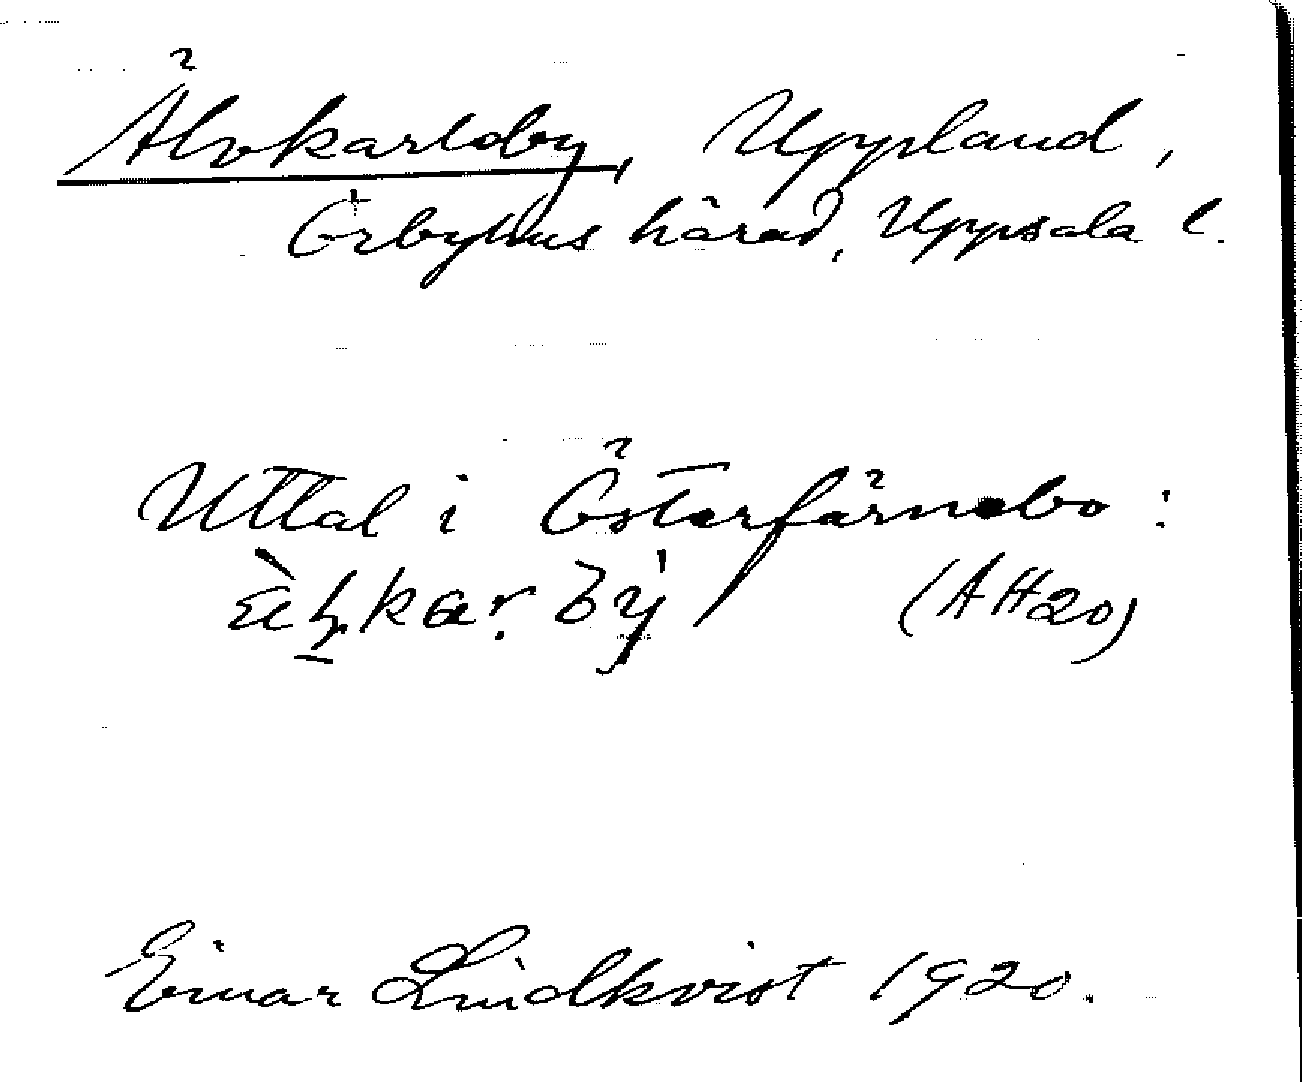 Älvkarleby, Uppland,
Örbyhus härad, Uppsala l.
Uttal i Österfärnebo:
(AH 20)
Einar Lindkvist 1920.